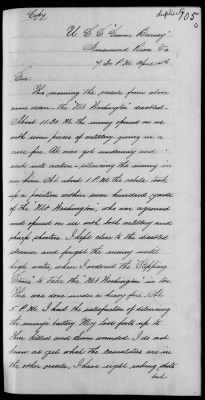 Copy
705
U. S. S. "Commo. Barney"
Nansemond River Va
7.30 P.M. April 14th
Sir:
This morning the vessels from above
came down - the "Mt Washington" disabled.
About 11.30 AM the enemy opened on us
with seven pieces of artillery giving us a
cross fire. All once got underway and
went into action - silencing the enemy in
an hour. At about 1 P.M. the rebels took
up a position within seven hundred yards
of the "Mt Washington", who was aground
and opened on us with both artillery and
sharp shooters. I kept close to the disabled
steamer and fought the enemy until
high water, when I ordered the Stepping
Stones to take the Mt Washington in tow.
This was done under a heavy fire. At
5 P.M. I had the satisfaction of silencing
the enemy's battery. My loss foots up to
three killed and seven wounded. I do not
know as yet what the casualties are in
the other vessels. I have eight raking shots